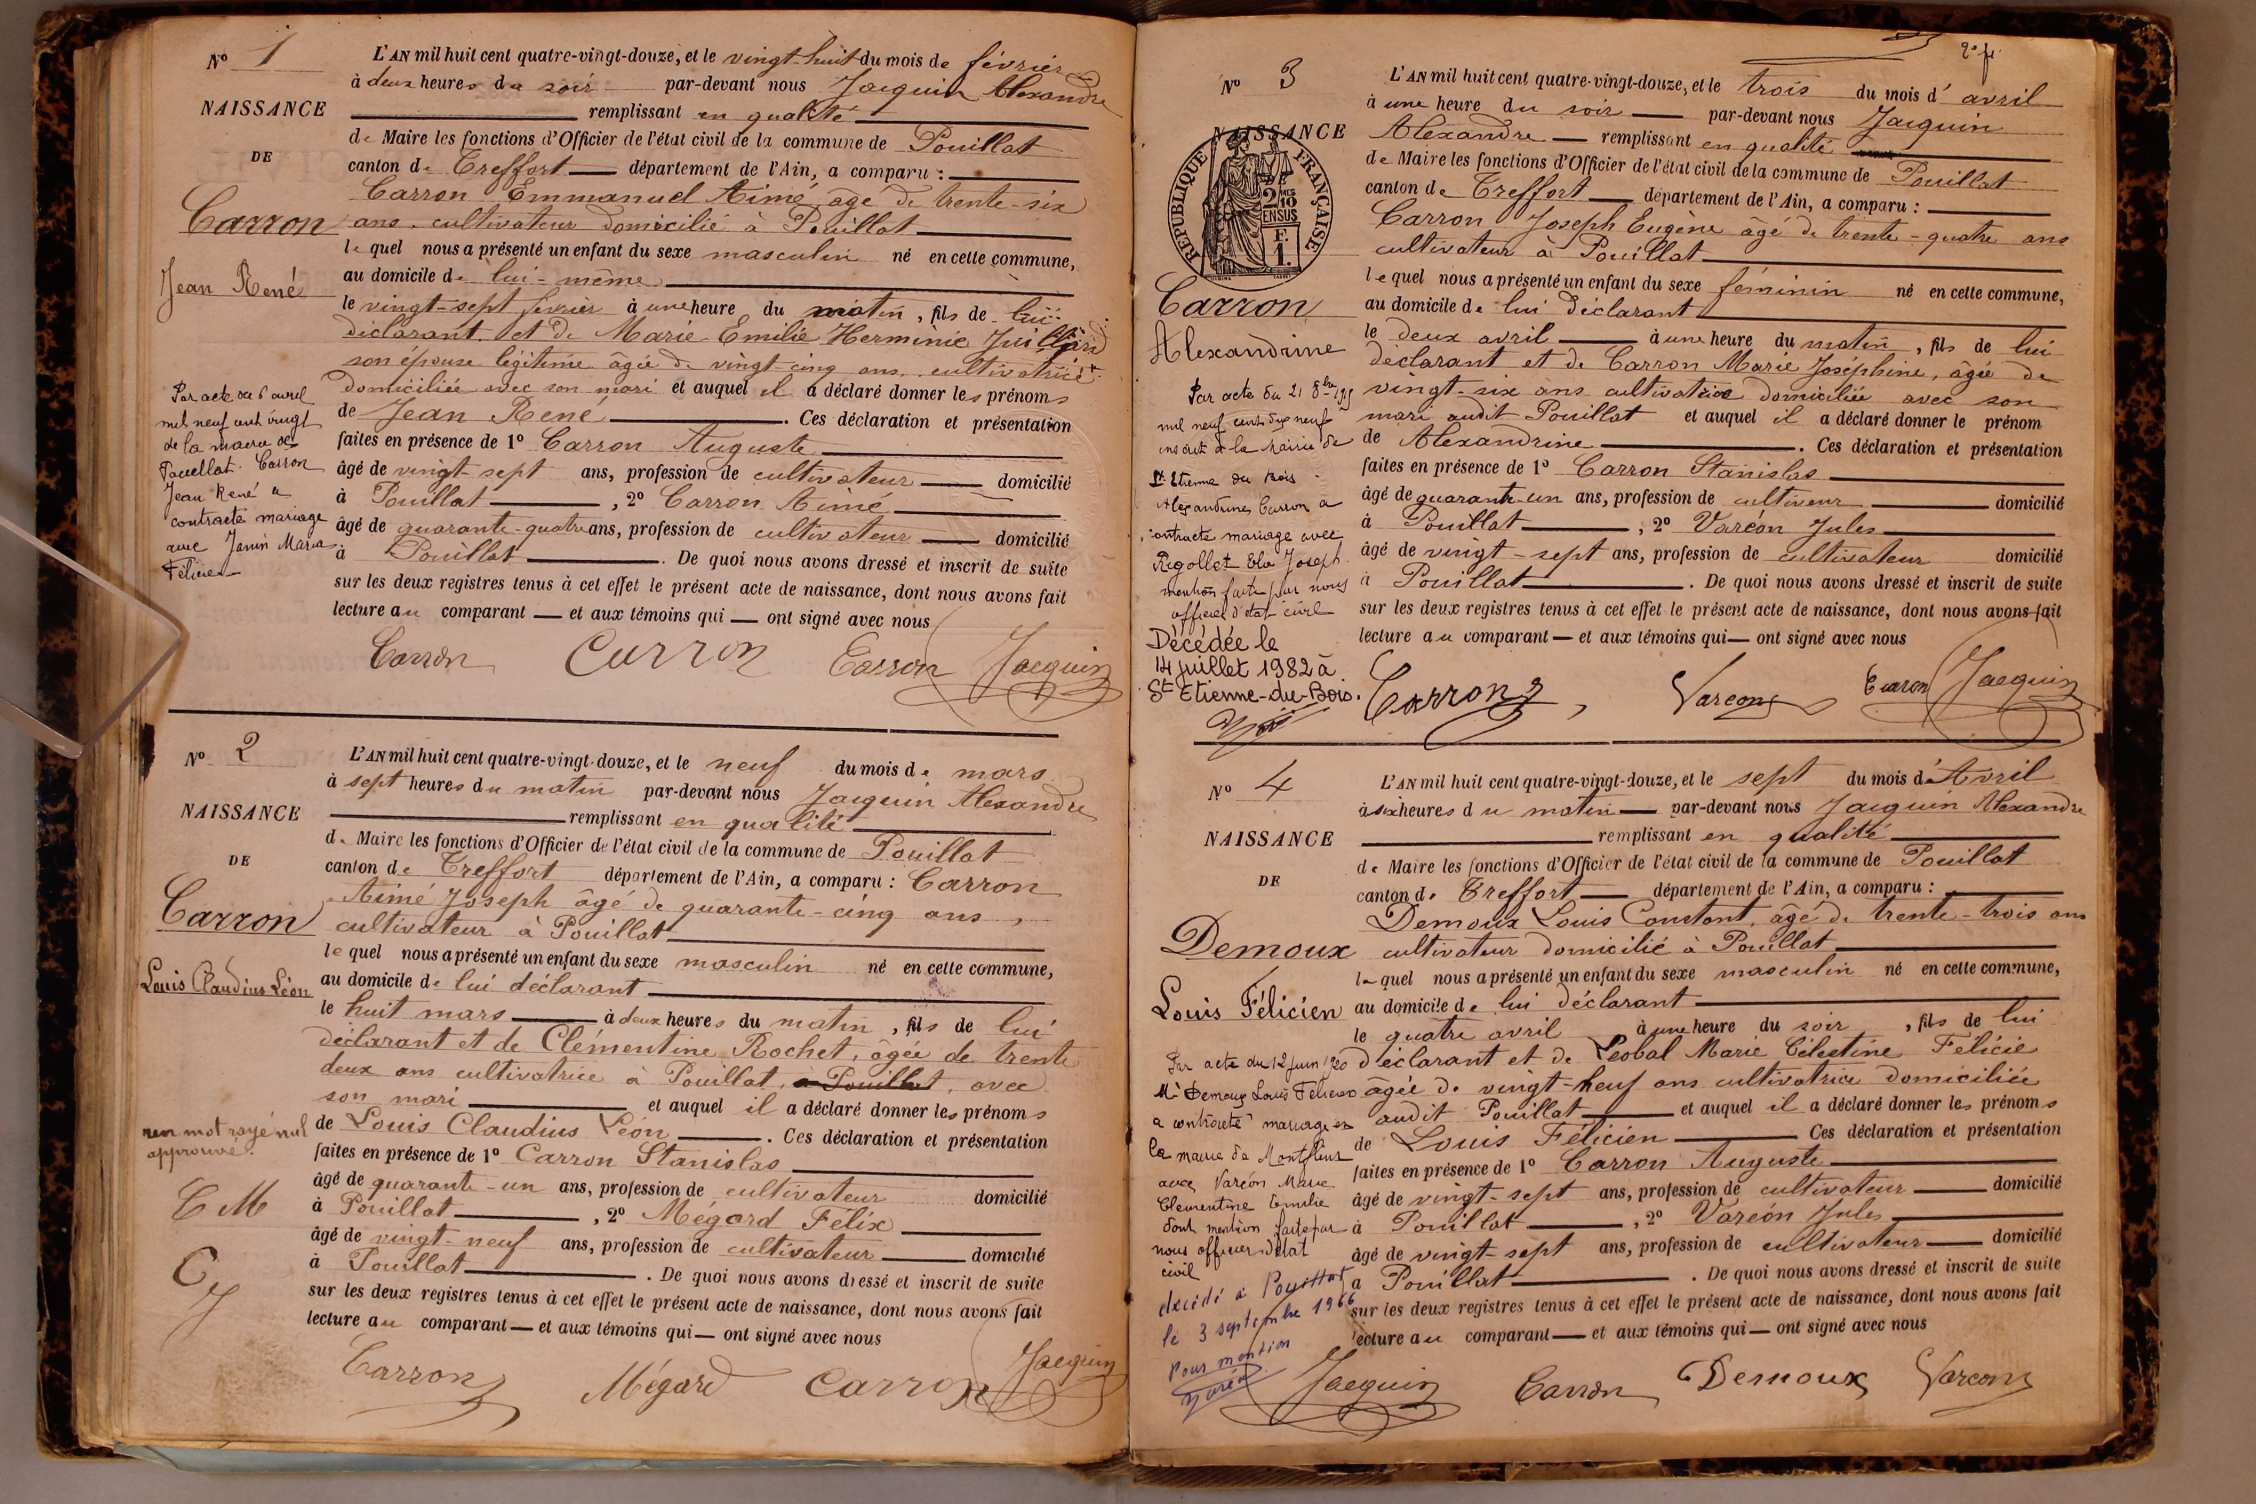 N° 1
NAISSANCE
DE
Carron
Jean René
L'AN mil huit cent quatre-vingt-douze, et le vingt-huit du mois de février
à deux heures du soir par-devant nous Jacquin Alexandre
remplissant en qualité
de Maire les fonctions d'Officier de l'état civil de la commune de Pouillat
canton de Treffort département de l'Ain, a comparu :
Carron Emmanuel Aimé, âgé de trente-six
ans, cultivateur domicilié à Pouillat
lequel nous a présenté un enfant du sexe masculin né en cette commune,
au domicile de lui-même
le vingt-sept février à une heure du matin, fils de lui
déclarant et de Marie Emilie Herminie Juillard
son épouse légitime âgée de vingt-cinq ans, cultivatrice
domiciliée avec son mari et auquel il a déclaré donner les prénoms
de Jean René . Ces déclaration et présentation
faites en présence de 1° Carron Auguste
âgé de vingt-sept ans, profession de cultivateur domicilié
à Pouillat , 2° Carron Aimé
âgé de quarante-quatre ans, profession de cultivateur domicilié
à Pouillat . De quoi nous avons dressé et inscrit de suite
sur les deux registres tenus à cet effet le présent acte de naissance, dont nous avons fait
lecture au comparant et aux témoins qui ont signé avec nous
Par acte du 6 avril
mil neuf cent vingt
de la mairie de
Pouillat. Carron
Jean René a
contracté mariage
avec Janin Maria
Carron Carron Carron Jacquin
N° 2
NAISSANCE
DE
Carron
Louis Claudius Léon
L'AN mil huit cent quatre-vingt-douze, et le neuf du mois de mars
à sept heures du matin par-devant nous Jacquin Alexandre
remplissant en qualité
de Maire les fonctions d'Officier de l'état civil de la commune de Pouillat
canton de Treffort département de l'Ain, a comparu : Carron
Aimé Joseph âgé de quarante-cinq ans,
cultivateur à Pouillat
lequel nous a présenté un enfant du sexe masculin né en cette commune,
au domicile de lui déclarant
le huit mars à deux heures du matin, fils de lui
déclarant et de Clémentine Rochet, âgée de trente
deux ans cultivatrice à Pouillat, à Pouillat, avec
son mari et auquel il a déclaré donner les prénoms
de Louis Claudius Léon . Ces déclaration et présentation
faites en présence de 1° Carron Stanislas
âgé de quarante-un ans, profession de cultivateur domicilié
à Pouillat , 2° Mégard Félix
âgé de vingt-neuf ans, profession de cultivateur domicilié
à Pouillat . De quoi nous avons dressé et inscrit de suite
sur les deux registres tenus à cet effet le présent acte de naissance, dont nous avons fait
lecture au comparant et aux témoins qui ont signé avec nous
mot rayé nul
approuvé.
C M
C
J
Carron Mégard Carron Jacquin
N° 3
NAISSANCE
DE
RÉPUBLIQUE FRANÇAISE
2/10 EN SUS
F. 1.
Carron
Alexandrine
L'AN mil huit cent quatre-vingt-douze, et le trois du mois d'avril
à une heure du soir par-devant nous Jacquin
Alexandre remplissant en qualité
de Maire les fonctions d'Officier de l'état civil de la commune de Pouillat
canton de Treffort département de l'Ain, a comparu :
Carron Joseph Eugène âgé de trente-quatre ans
cultivateur à Pouillat
lequel nous a présenté un enfant du sexe féminin né en cette commune,
au domicile de lui déclarant
le deux avril à une heure du matin, fils de lui
déclarant et de Carron Marie Joséphine, âgée de
vingt-six ans cultivatrice domiciliée avec son
mari audit Pouillat et auquel il a déclaré donner le prénom
de Alexandrine . Ces déclaration et présentation
faites en présence de 1° Carron Stanislas
âgé de quarante-un ans, profession de cultiveur domicilié
à Pouillat , 2° Varéon Jules
âgé de vingt-sept ans, profession de cultivateur domicilié
à Pouillat . De quoi nous avons dressé et inscrit de suite
sur les deux registres tenus à cet effet le présent acte de naissance, dont nous avons fait
lecture au comparant et aux témoins qui ont signé avec nous
Par acte du 21 8bre
mil neuf cent dix neuf
inscrit à la Mairie de
St Etienne du Bois
Alexandrine Carron a
contracté mariage avec
Rigollet Joseph
mention faite par nous
officier d'état civil
Décédée le
14 juillet 1982 à
St Etienne-du-Bois.
Carron Varéon Carron Jacquin
N° 4
NAISSANCE
DE
Demoux
Louis Félicien
L'AN mil huit cent quatre-vingt-douze, et le sept du mois d'Avril
à six heures du matin par-devant nous Jacquin Alexandre
remplissant en qualité
de Maire les fonctions d'Officier de l'état civil de la commune de Pouillat
canton de Treffort département de l'Ain, a comparu :
Demoux Louis Constant, âgé de trente-trois ans
cultivateur domicilié à Pouillat
lequel nous a présenté un enfant du sexe masculin né en cette commune,
au domicile de lui déclarant
le quatre avril à une heure du soir, fils de lui
déclarant et de Leobal Marie Célestine Félicie
âgée de vingt-neuf ans cultivatrice domiciliée
audit Pouillat et auquel il a déclaré donner les prénoms
de Louis Félicien Ces déclaration et présentation
faites en présence de 1° Carron Auguste
âgé de vingt-sept ans, profession de cultivateur domicilié
à Pouillat , 2° Varéon Jules
âgé de vingt-sept ans, profession de cultivateur domicilié
à Pouillat . De quoi nous avons dressé et inscrit de suite
sur les deux registres tenus à cet effet le présent acte de naissance, dont nous avons fait
lecture au comparant et aux témoins qui ont signé avec nous
Par acte du 12 juin 1920
Mr Demoux Louis Félicien
a contracté mariage en
la mairie de Montfleur
avec Varéon Marie
Clementine Emilie
dont mention faite par
nous officier d'état
civil
décédé à Pouillat
le 3 septembre 1966
Pour mention
Jacquin Carron Demoux Varéon